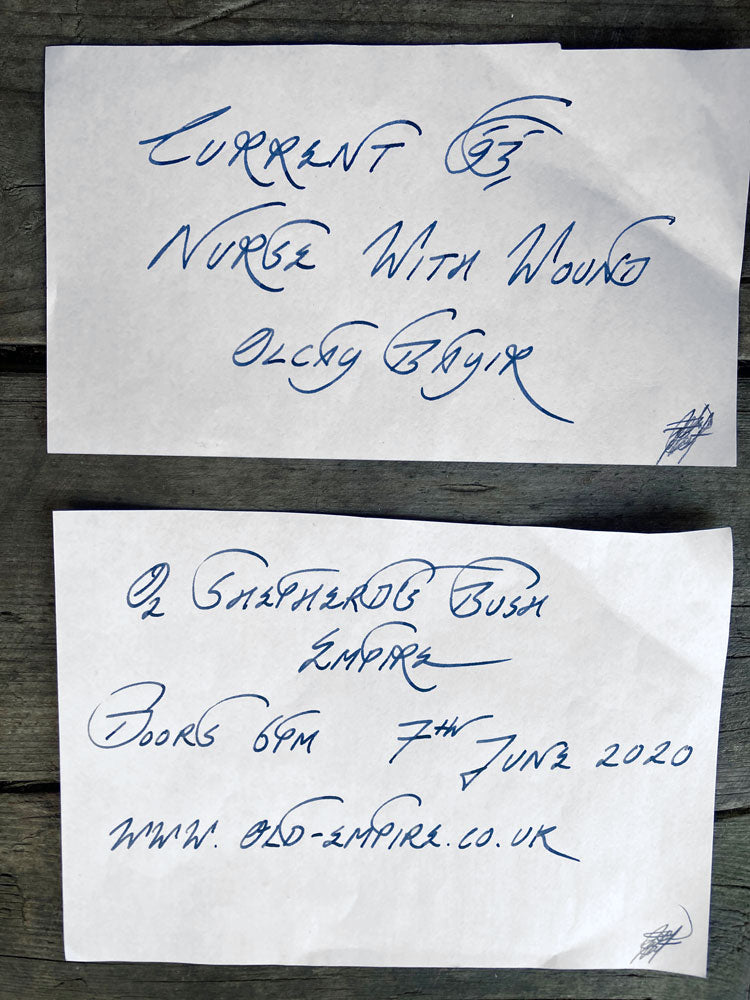 CURRENT 93
NURSE WITH WOUND
OLCAY BAYIR
O2 SHEPHERDS BUSH
EMPIRE
DOORS 6PM 7TH JUNE 2020
WWW.OLD-EMPIRE.CO.UK